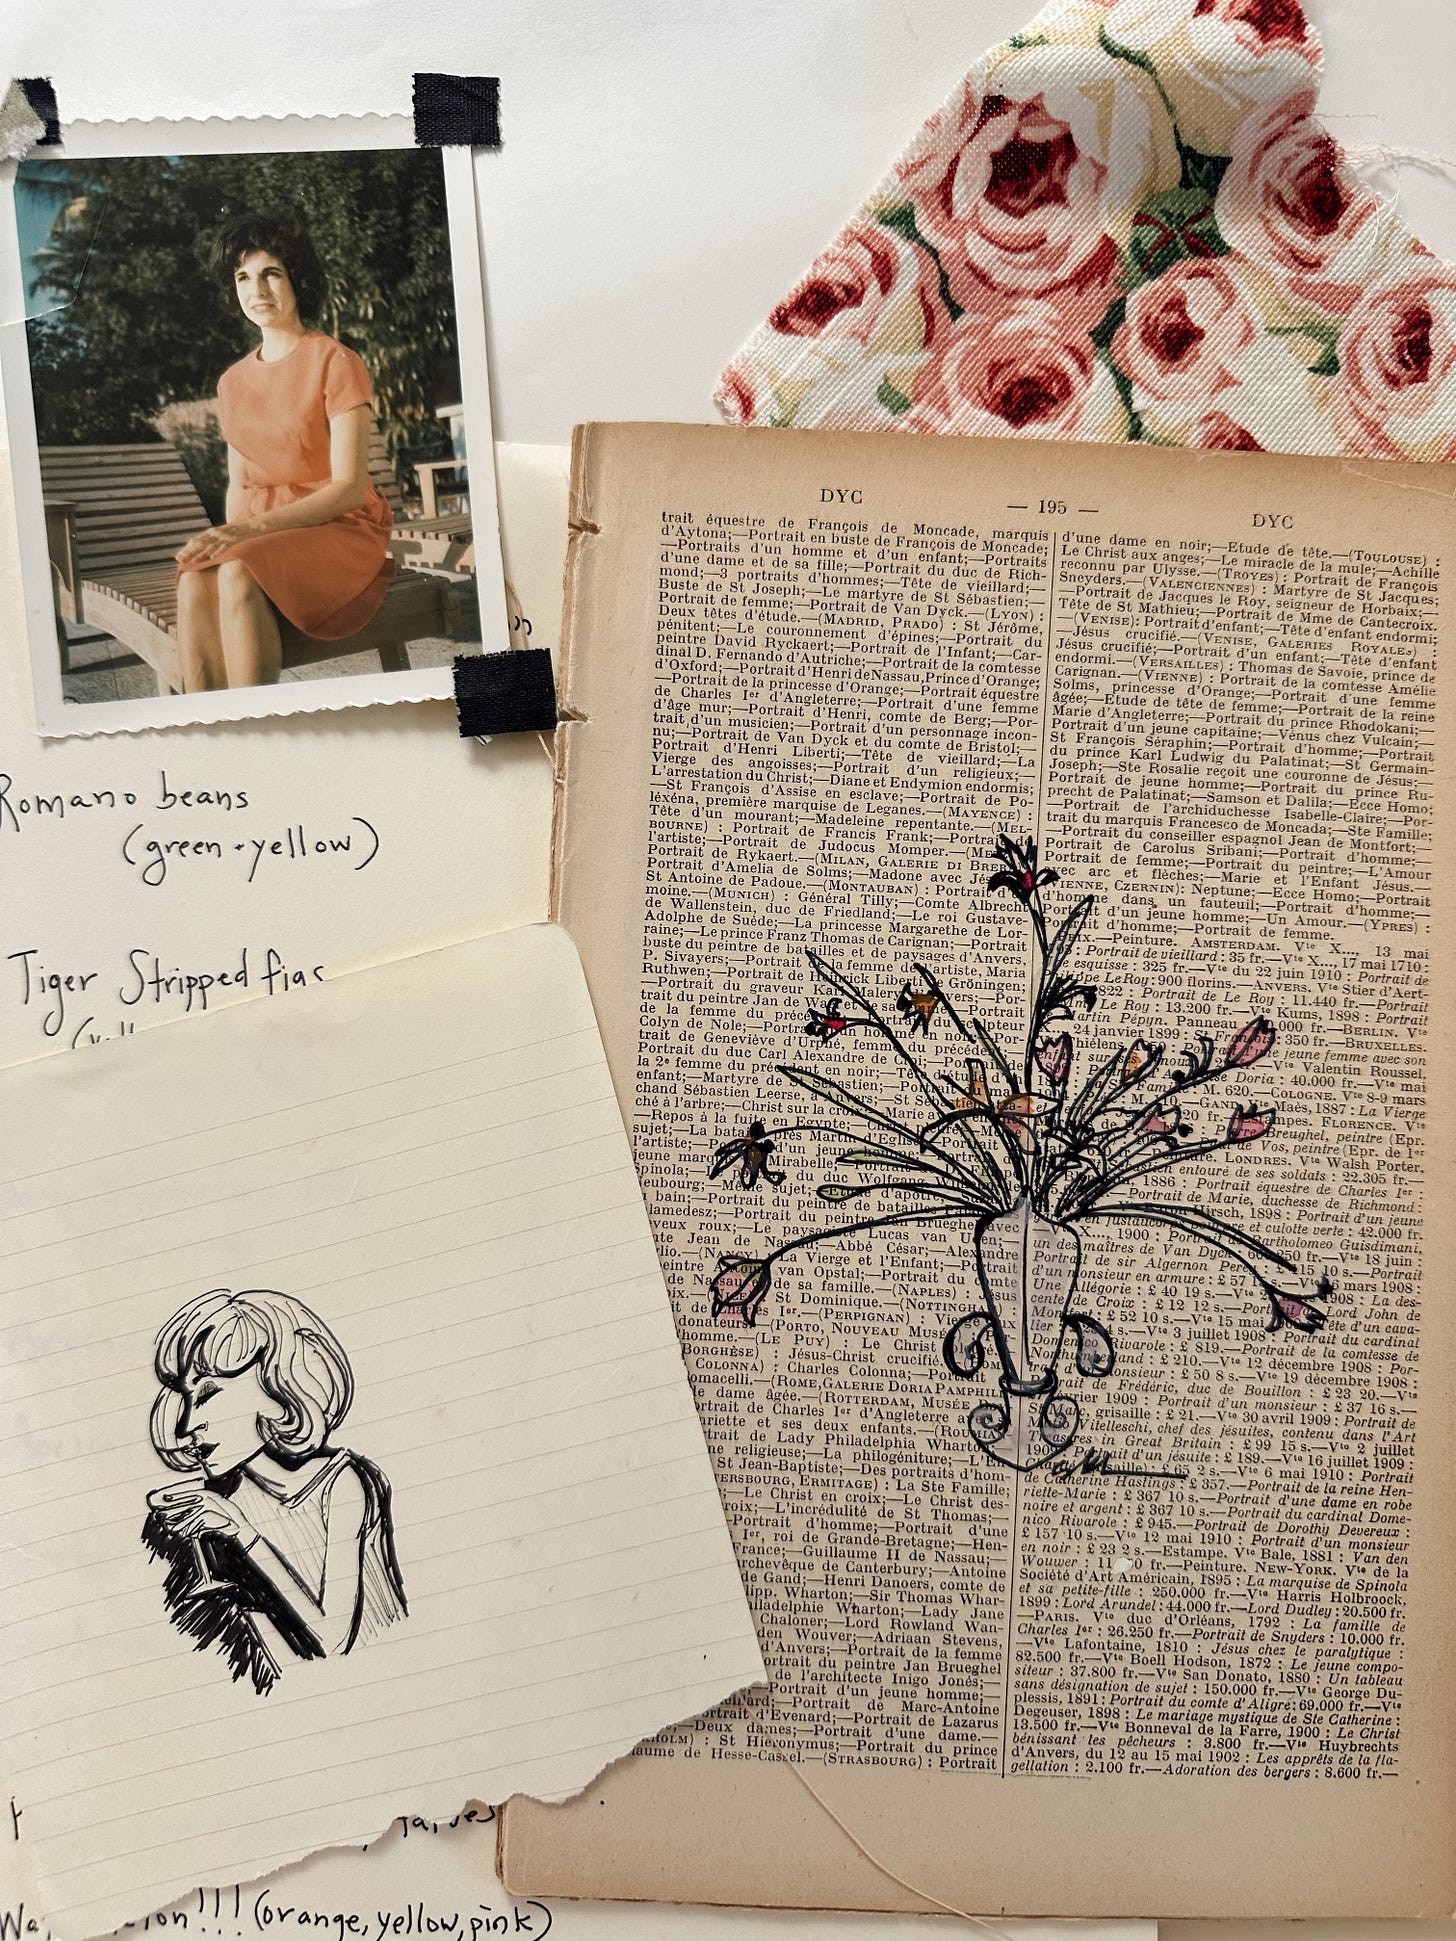 Romano beans
(green + yellow)
Tiger Stripped figs
Wa
ion!!! (orange, yellow, pink)
DYC
— 195 —
DYC
trait équestre de François de Moncade, marquis
d'Aytona;—Portrait en buste de François de Moncade;
—Portraits d'un homme et d'un enfant;—Portraits
d'une dame et de sa fille;—Portrait du duc de Rich-
mond;—3 portraits d'hommes;—Tête de vieillard;—
Buste de St Joseph;—Le martyre de St Sébastien;—
Portrait de femme;—Portrait de Van Dyck.—(LYON) :
Deux têtes d'étude.—(MADRID, PRADO) : St Jérôme,
pénitent;—Le couronnement d'épines;—Portrait du
peintre David Ryckaert;—Portrait de l'Infant;—Car-
dinal D. Fernando d'Autriche;—Portrait de la comtesse
d'Oxford;—Portrait d'Henri de Nassau, Prince d'Orange;
—Portrait de la princesse d'Orange;—Portrait équestre
de Charles Ier d'Angleterre;—Portrait d'une femme
d'âge mur;—Portrait d'Henri, comte de Berg;—Por-
trait d'un musicien;—Portrait d'un personnage incon-
nu;—Portrait de Van Dyck et du comte de Bristol;—
Portrait d'Henri Liberti;—Tête de vieillard;—La
Vierge des angoisses;—Portrait d'un religieux;—
L'arrestation du Christ;—Diane et Endymion endormis;
—St François d'Assise en esclave;—Portrait de Po-
léxéna, première marquise de Leganes.—(MAYENCE) :
Tête d'un mourant;—Madeleine repentante.—(MEL-
BOURNE) : Portrait de Francis Frank;—Portrait de
l'artiste;—Portrait de Judocus Momper.—(
Portrait de Rykaert.—(MILAN, GALERIE DI BRER
Portrait d'Amelia de Solms;—Madone avec Jés
St Antoine de Padoue.—(MONTAUBAN) : Portrait d'
moine.—(MUNICH) : Général Tilly;—Comte Albrecht
de Wallenstein, duc de Friedland;—Le roi Gustave-
Adolphe de Suède;—La princesse Margarethe de Lor-
raine;—Le prince Franz Thomas de Carignan;—Portrait
buste du peintre de batailles et de paysages d'Anvers,
P. Snayers;—Portrait de la femme de l'artiste, Maria
Ruthwen;—Portrait de Heinrich Liberti de Gröningen;
—Portrait du graveur Karl Malery d'Anvers;—Por-
trait du peintre Jan de Wael et de sa
de la femme du précé
Colyn de Nole;—Portrait d'un homme en noir;—Por-
trait de Geneviève d'Urphé, femme du précédent;—
Portrait du duc Carl Alexandre de Croi;—Portrait de
la 2e femme du précédent en noir;—Tête d'étude d'un
enfant;—Martyre de St Sébastien;—Portrait du mar-
chand Sébastien Leerse, à Anvers;—St Sébastien
ché à l'arbre;—Christ sur la croix;—Marie av
—Repos à la fuite en Egypte;—Christ
sujet;—La bataille près Martin d'Eglise;—Portrait
l'artiste;—Portrait d'un jeune homme;—Portrait
Mirabelle;—Portrait de D. Filippo
Spinola;—Portrait du duc Wolfgang Wilhelm
Même sujet;—Etude d'apôtre;
bain;—Portrait du peintre de batailles
Portrait du peintre Jan Brueghel avec
yeux roux;—Le paysagiste Lucas van Uden;—
Jean de Nassau;—Abbé César;—Alexandre
(NANCY) : La Vierge et l'Enfant;—Portrait
van Opstal;—Portrait du comte
de Nassau et de sa famille.—(NAPLES) : Jésus
St Dominique.—(NOTTINGHAM) :
Charles Ier.—(PERPIGNAN) : Vierge
donateurs.—(PORTO, NOUVEAU MUSÉE
homme.—(LE PUY) : Le Christ
BORGHÈSE) : Jésus-Christ crucifié.
COLONNA) : Charles Colonna;—Portrait
omacelli.—(ROME, GALERIE DORIA PAMPHILI
dame âgée.—(ROTTERDAM, MUSÉE
ortrait de Charles Ier d'Angleterre
nriette et ses deux enfants.—(
de Lady Philadelphia Wharton;
ne religieuse;—La philogéniture;—L'En
St Jean-Baptiste;—Des portraits d'hom-
TERSBOURG, ERMITAGE) : La Ste Famille;
;—Le Christ en croix;—Le Christ des-
roix;—L'incrédulité de St Thomas;—
Portrait d'homme;—Portrait d'une
Ier, roi de Grande-Bretagne;—Hen-
France;—Guillaume II de Nassau;—
archevêque de Canterbury;—Antoine
de Gand;—Henri Danoers, comte de
lipp. Wharton;—Sir Thomas Whar-
hiladelphie Wharton;—Lady Jane
Chaloner;—Lord Rowland Wan-
den Wouver;—Adriaan Stevens,
d'Anvers;—Portrait de la femme
ortrait du peintre Jan Brueghel
de l'architecte Inigo Jonés;—
Portrait d'un jeune homme;—
—Portrait de Marc-Antoine
ortrait d'Evenard;—Portrait de Lazarus
—Deux dames;—Portrait d'une dame.—
HOLM) : St Hieronymus;—Portrait du prince
laume de Hesse-Cassel.—(STRASBOURG) : Portrait
d'une dame en noir;—Etude de tête.—(TOULOUSE) :
Le Christ aux anges;—Le miracle de la mule;—Achille
reconnu par Ulysse.—(TROYES) : Portrait de François
Sneyders.—(VALENCIENNES) : Martyre de St Jacques;
—Portrait de Jacques le Roy, seigneur de Horbaix;—
Tête de St Mathieu;—Portrait de Mme de Cantecroix.
—(VENISE) : Portrait d'enfant;—Tête d'enfant endormi;
—Jésus crucifié.—(VENISE, GALERIES ROYALES) :
Jésus crucifié;—Portrait d'un enfant;—Tête d'enfant
endormi.—(VERSAILLES) : Thomas de Savoie, prince de
Carignan.—(VIENNE) : Portrait de la comtesse Amélie
Solms, princesse d'Orange;—Portrait d'une femme
âgée;—Etude de tête de femme;—Portrait de la reine
Marie d'Angleterre;—Portrait du prince Rhodokani;—
Portrait d'un jeune capitaine;—Vénus chez Vulcain;—
St François Séraphin;—Portrait d'homme;—Portrait
du prince Karl Ludwig du Palatinat;—St Germain-
Joseph;—Ste Rosalie reçoit une couronne de Jésus;—
Portrait de jeune homme;—Portrait du prince Ru-
precht de Palatinat;—Samson et Dalila;—Ecce Homo;
—Portrait de l'archiduchesse Isabelle-Claire;—Por-
trait du marquis Francesco de Moncada;—Ste Famille;
—Portrait du conseiller espagnol Jean de Montfort;—
Portrait de Carolus Sribani;—Portrait d'homme;—
Portrait de femme;—Portrait du peintre;—L'Amour
avec arc et flèches;—Marie et l'Enfant Jésus.—
(VIENNE, CZERNIN) : Neptune;—Ecce Homo;—Portrait
d'homme dans un fauteuil;—Portrait d'homme;—
Portrait d'un jeune homme;—Un Amour.—(YPRES) :
Portrait d'homme;—Portrait de femme.
PRIX.—Peinture. AMSTERDAM. Vte X..., 13 mai
Portrait de vieillard : 35 fr.—Vte X..., 17 mai 1710 :
esquisse : 325 fr.—Vte du 22 juin 1910 : Portrait de
Philippe Le Roy : 900 florins.—ANVERS. Vte Stier d'Aert-
1822 : Portrait de Le Roy : 11.440 fr.—Portrait
Mme Le Roy : 13.200 fr.—Vte Kums, 1898 : Portrait
Martin Pépyn. Panneau ,000 fr.—BERLIN. Vte
X..., 24 janvier 1899 : St François : 350 fr.—BRUXELLES.
une jeune femme avec son
enfant sur ses genoux Vte Valentin Roussel,
Doria : 40.000 fr.—Vte mai
Famille : M. 620.—COLOGNE. Vte 8-9 mars
M. 10.—GAND. Vte Maès, 1887 : La Vierge
20 fr.—Estampes. FLORENCE. Vte
Breughel, peintre (Epr.
de Vos, peintre (Epr. de 1er
Peinture. LONDRES. Vte Walsh Porter,
Sébastien entouré de ses soldats : 22.305 fr.—
1886 : Portrait équestre de Charles Ier :
Portrait de Marie, duchesse de Richmond :
Hirsch, 1898 : Portrait d'un jeune
en justaucorps et culotte verte : 42.000 fr.
—Vte X..., 1900 : Portrait de Bartholomeo Guisdimani,
un des maîtres de Van Dyck : 250 fr.—Vte 18 juin :
Portrait de sir Algernon Percy : £ 115 10 s.—Portrait
d'un monsieur en armure : £ 57 1908 : La des-
Une Allégorie : £ 40 19 s.—Vte Lord John de
cente de Croix : £ 12 12 s.—Vte 15 mai Tête d'un cava-
Montfort : £ 52 10 s. Portrait du cardinal
lier : 4 s.—Vte 3 juillet 1908 : Portrait de la comtesse de
Domenico Rivarole : £ 819.—Portrait
Northumberland : £ 210.—Vte 12 décembre 1908 : Por-
monsieur : £ 50 8 s.—Vte 19 décembre 1908 :
Portrait de Frédéric, duc de Bouillon : £ 23 20.—Vte
février 1909 : Portrait d'un monsieur : £ 37 16 s.—
St Marc, grisaille : £ 21.—Vte 30 avril 1909 : Portrait de
Vitelleschi, chef des jésuites, contenu dans l'Art
Treasures in Great Britain : £ 99 15 s.—Vte 2 juillet
1909 : Portrait d'un jésuite : £ 189.—16 juillet 1909 :
(grisaille) : £ 65 2 s.—Vte 6 mai 1910 : Portrait
de Catherine Hastings : £ 357.—Portrait de la reine Hen-
riette-Marie : £ 367 10 s.—Portrait d'une dame en robe
noire et argent : £ 367 10 s.—Portrait du cardinal Dome-
nico Rivarole : £ 945.—Portrait de Dorothy Devereux :
£ 157 10 s.—Vte 12 mai 1910 : Portrait d'un monsieur
en noir : £ 23 2 s.—Estampe. Vte Bale, 1881 : Van den
Wouwer : 11 0 fr.—Peinture. NEW-YORK. Vte de la
Société d'Art Américain, 1895 : La marquise de Spinola
et sa petite-fille : 250.000 fr.—Vte Harris Holbroock,
1899 : Lord Arundel : 44.000 fr.—Lord Dudley : 20.500 fr.
—PARIS. Vte duc d'Orléans, 1792 : La famille de
Charles Ier : 26.250 fr.—Portrait de Snyders : 10.000 fr.
—Vte Lafontaine, 1810 : Jésus chez le paralytique :
82.500 fr.—Vte Boell Hodson, 1872 : Le jeune compo-
siteur : 37.800 fr.—Vte San Donato, 1880 : Un tableau
sans désignation de sujet : 150.000 fr.—Vte George Du-
plessis, 1891 : Portrait du comte d'Aligre : 69.000 fr.—Vte
Degeuser, 1898 : Le mariage mystique de Ste Catherine :
13.500 fr.—Vte Bonneval de la Farre, 1900 : Le Christ
bénissant les pécheurs : 3.800 fr.—Vte Huybrechts
d'Anvers, du 12 au 15 mai 1902 : Les apprêts de la fla-
gellation : 2.100 fr.—Adoration des bergers : 8.600 fr.—